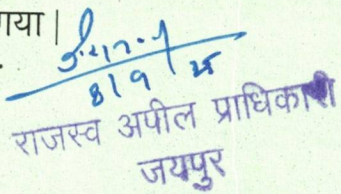 गया |
8/9/25
राजस्व अपील प्राधिकारी
जयपुर